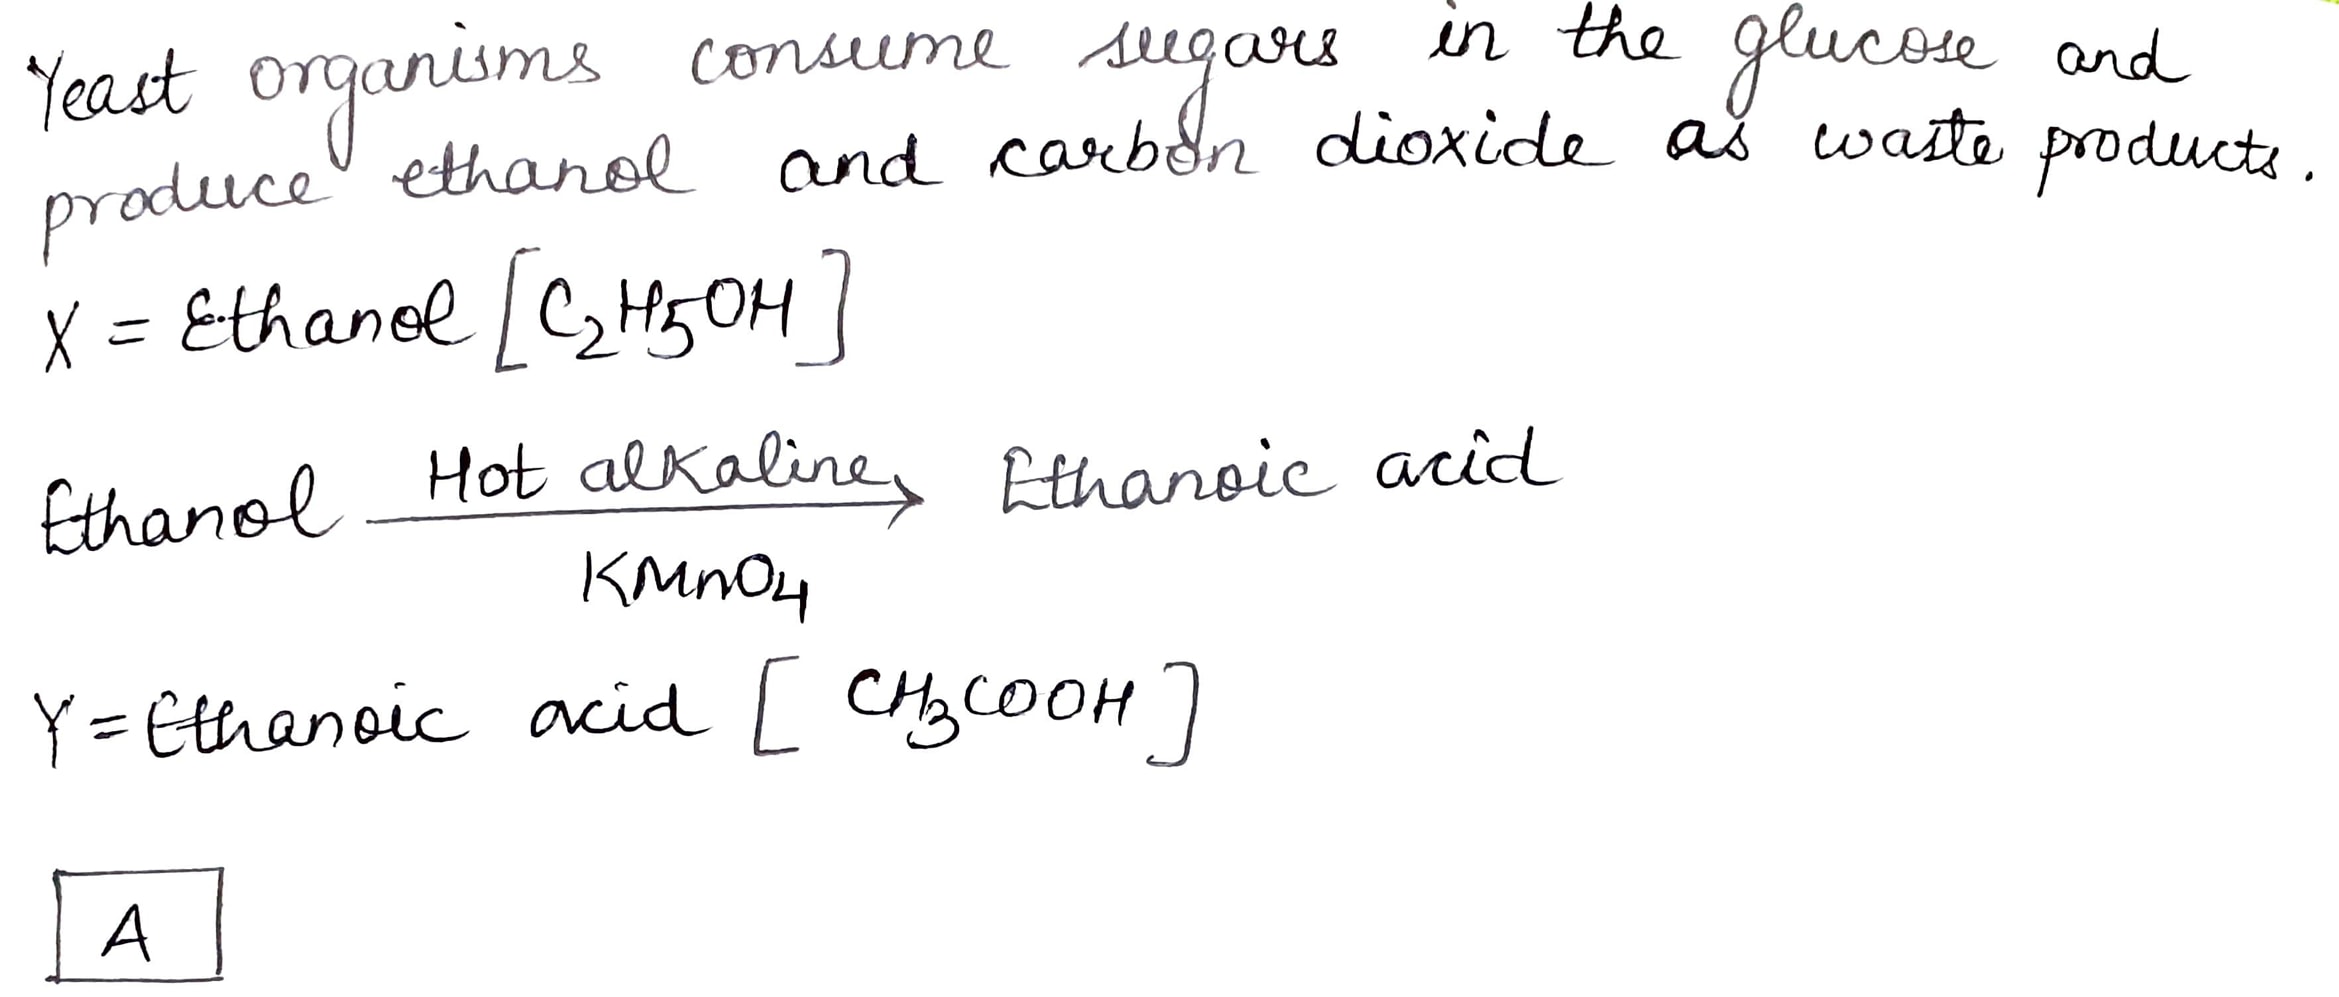 Yeast organisms consume sugars in the glucose and
produce ethanol and carbon dioxide as waste products.
X = Ethanol [C₂H₅OH]
Ethanol Hot alkaline→ Ethanoic acid
KMnO₄
Y = Ethanoic acid [CH₃COOH]
A